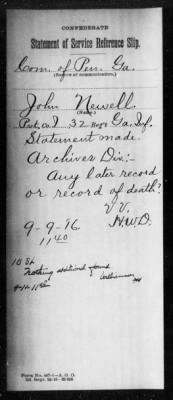 CONFEDERATE
Statement of Service Reference Slip.
Com. of Pen. Ga.
(Source of communication.)
John Newell.
(Name.)
Pvt. Co. I 32 Reg't Ga. Inf.
Statement made
Archives Div:-
Any later record
or record of death?
V.V.
H.W.D.
9-9-16
11 40
10 St
Nothing additional found
Form No. 467-1—A. G. O.